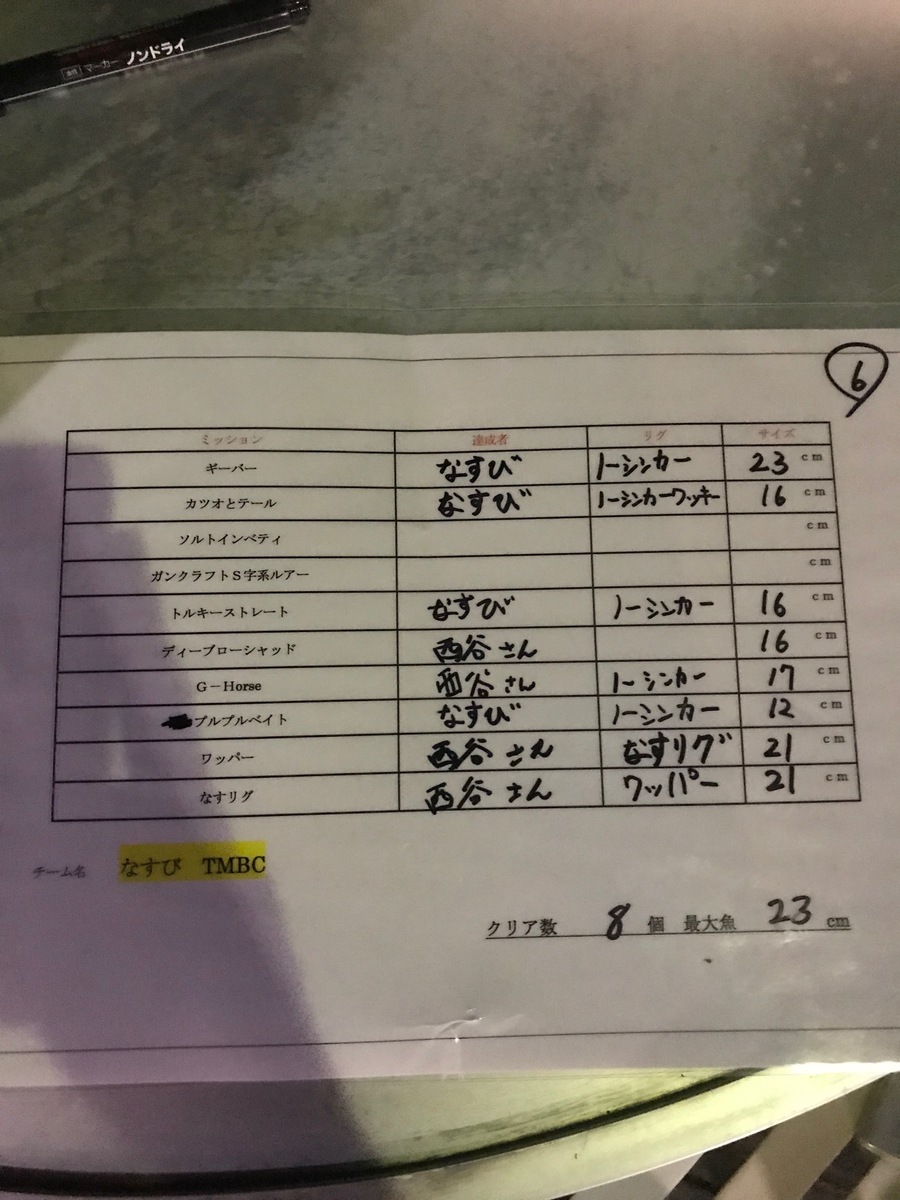 油性 マーカー ノンドライ
6
ミッション 達成者 リグ サイズ
ギーバー なすび ノーシンカー 23 cm
カツオとテール なすび ノーシンカーワッキー 16 cm
ソルトインベティ cm
ガンクラフトS字系ルアー cm
トルキーストレート なすび ノーシンカー 16 cm
ディープローシャッド 西谷さん 16 cm
G－Horse 西谷さん ノーシンカー 17 cm
プルプルベイト なすび ノーシンカー 12 cm
ワッパー 西谷さん なすリグ 21 cm
なすリグ 西谷さん ワッパー 21 cm
チーム名 なすび TMBC
クリア数 8 個 最大魚 23 cm